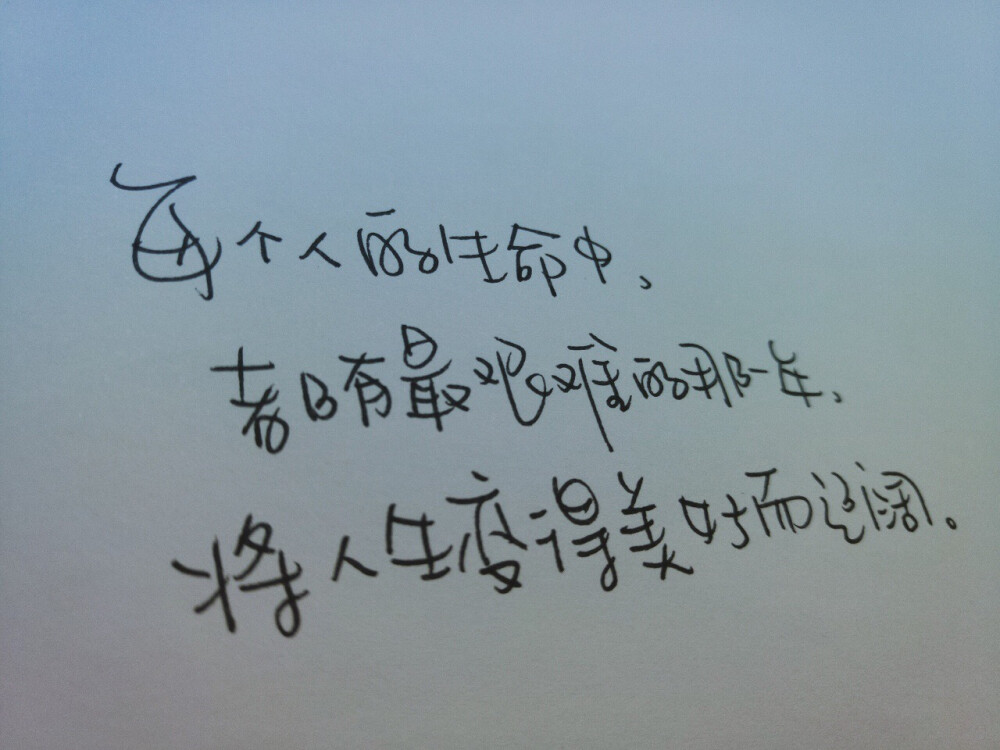 每个人的生命中、
都有最艰难的那一年、
将人生变得美好而辽阔。